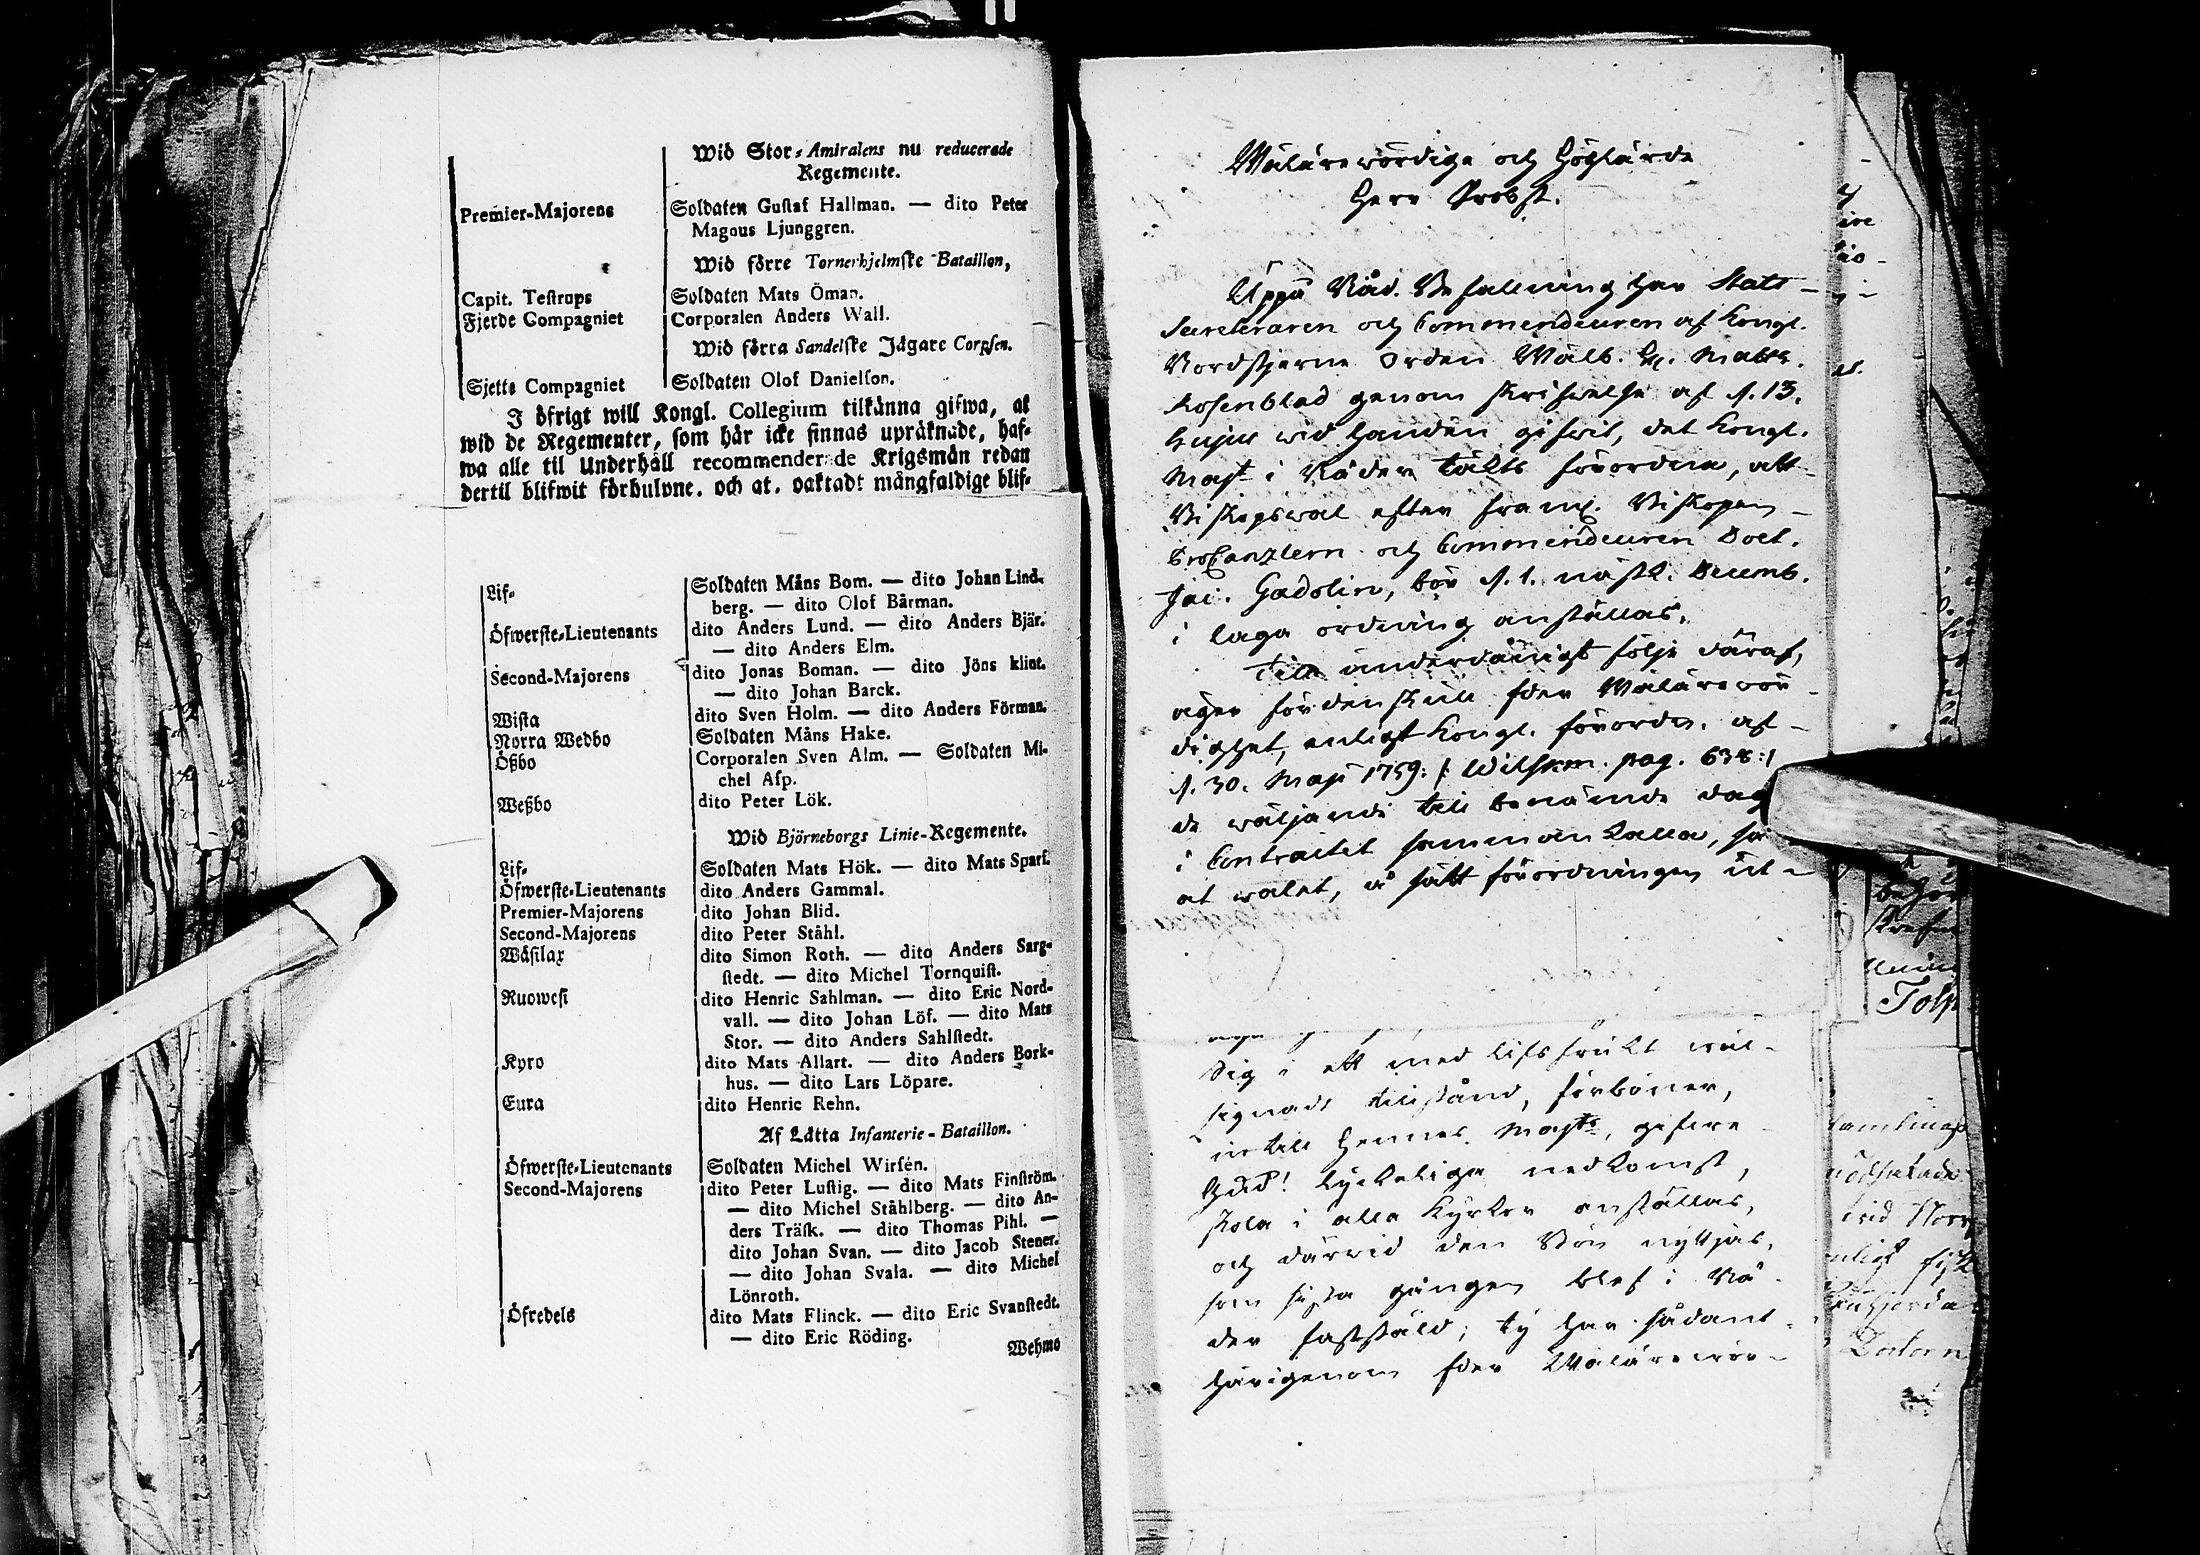 Wid Stor-Amiralens nu reducerade
Regemente.
Premier-Majorens Soldaten Gustaf Hallman. — dito Peter
Magnus Ljunggren.
Wid förre Tornerhjelmske Bataillon,
Capit. Testrups Soldaten Mats Öman.
Fjerde Compagniet Corporalen Anders Wall.
Wid förra Sandelske Jägare Corpsen.
Sjette Compagniet Soldaten Olof Danielson.
I öfrigt will Kongl. Collegium tilkänna gifwa, at
wid de Regementer, som här icke finnas upräknade, haf-
wa alle til Underhåll recommenderade Krigsmän redan
dertil blifwit förhulpne, och at, oaktadt mångfaldige blif-
Lif- Soldaten Måns Bom. — dito Johan Lind-
berg. — dito Olof Bärman.
Öfwerste-Lieutenants dito Anders Lund. — dito Anders Bjär.
— dito Anders Elm.
Second-Majorens dito Jonas Boman. — dito Jöns klint.
— dito Johan Barck.
Wista dito Sven Holm. — dito Anders Förman.
Norra Wedbo Soldaten Måns Hake.
Ößbo Corporalen Sven Alm. — Soldaten Mi-
chel Asp.
Weßbo dito Peter Lök.
Wid Björneborgs Linie-Regemente.
Lif- Soldaten Mats Hök. — dito Mats Sparf.
Öfwerste-Lieutenants dito Anders Gammal.
Premier-Majorens dito Johan Blid.
Second-Majorens dito Peter Ståhl.
Wäsilax dito Simon Roth. — dito Anders Sarg-
stedt. — dito Michel Tornquist.
Ruowesi dito Henric Sahlman. — dito Eric Nord-
vall. — dito Johan Löf. — dito Mats
Stor. — dito Anders Sahlstedt.
Kyro dito Mats Allart. — dito Anders Bork-
hus. — dito Lars Löpare.
Eura dito Henric Rehn.
Af Lätta Infanterie-Bataillon.
Öfwerste-Lieutenants Soldaten Michel Wirsén.
Second-Majorens dito Peter Lustig. — dito Mats Finström.
— dito Michel Ståhlberg. — dito An-
ders Träsk. — dito Thomas Pihl. —
dito Johan Svan. — dito Jacob Stener.
— dito Johan Svala. — dito Michel
Lönroth.
Öfredels dito Mats Flinck. — dito Eric Svanstedt.
— dito Eric Röding.
Wehmo
Wälärewördige och Höglärde
Herr Probst.
Uppå Nåd. Befallning har Stats-
Secreteraren och Commendeuren af Kongl.
Nordstjerne Orden Wälb. H. Matts.
Rosenblad genom Skrifwelse af d. 13.
hujus wid handen gifwit, det Kongl.
Majt i Nåder täkts förordna, att
Biskopswal efter framl. Biskopen
ProCanzleren och Commendeuren Doct.
Jac. Gadolin, bör d. 1. näst. Decemb.
i laga ordning anställas.
Till underdånigst följe däraf,
äger fördenskull Eder Wälärewör-
dighet, enligt Kongl. förordn. af
d. 30. Maji 1759: /: Wilskm. pag. 638:/
de wäljande till benämde dag
i Contractet sammankalla, så
at walet, å sätt förordningen ut-
Sig i ett med lifsfrukt wäl-
signadt tillstånd, förböner,
intill Hennes Majts, gifwe
Gud! lyckeliga nedkomst,
skola i alla Kyrkor anställas,
och därwid den Bön nyttjas,
som sista gången blef i Nå-
der fastställd; ty har sådant
härigenom Eder Wälärewör-